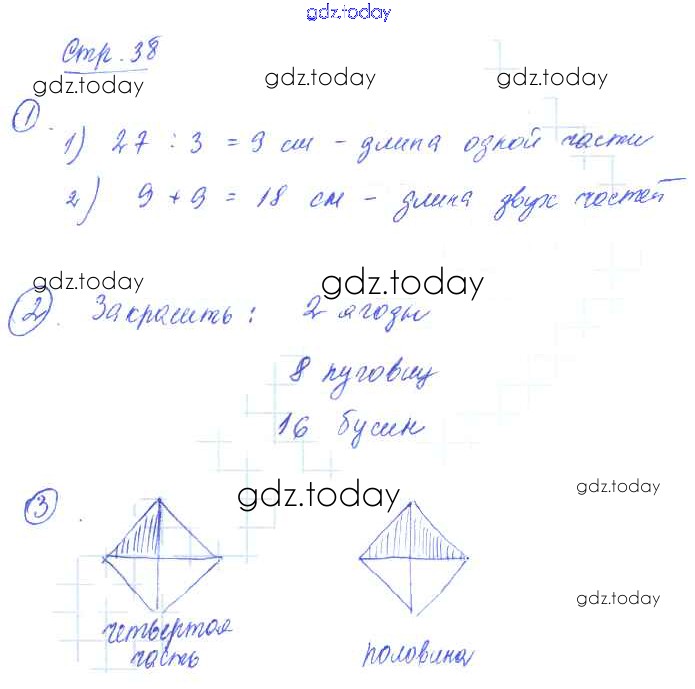 gdz.today
Стр. 38
gdz.today gdz.today gdz.today
1
1) 27 : 3 = 9 см – длина одной части
2) 9 + 9 = 18 см – длина двух частей
gdz.today gdz.today gdz.today
2. Закрасить: 2 ягоды
8 пуговиц
16 бусин
gdz.today
3
gdz.today
gdz.today
четвертая
часть
половина